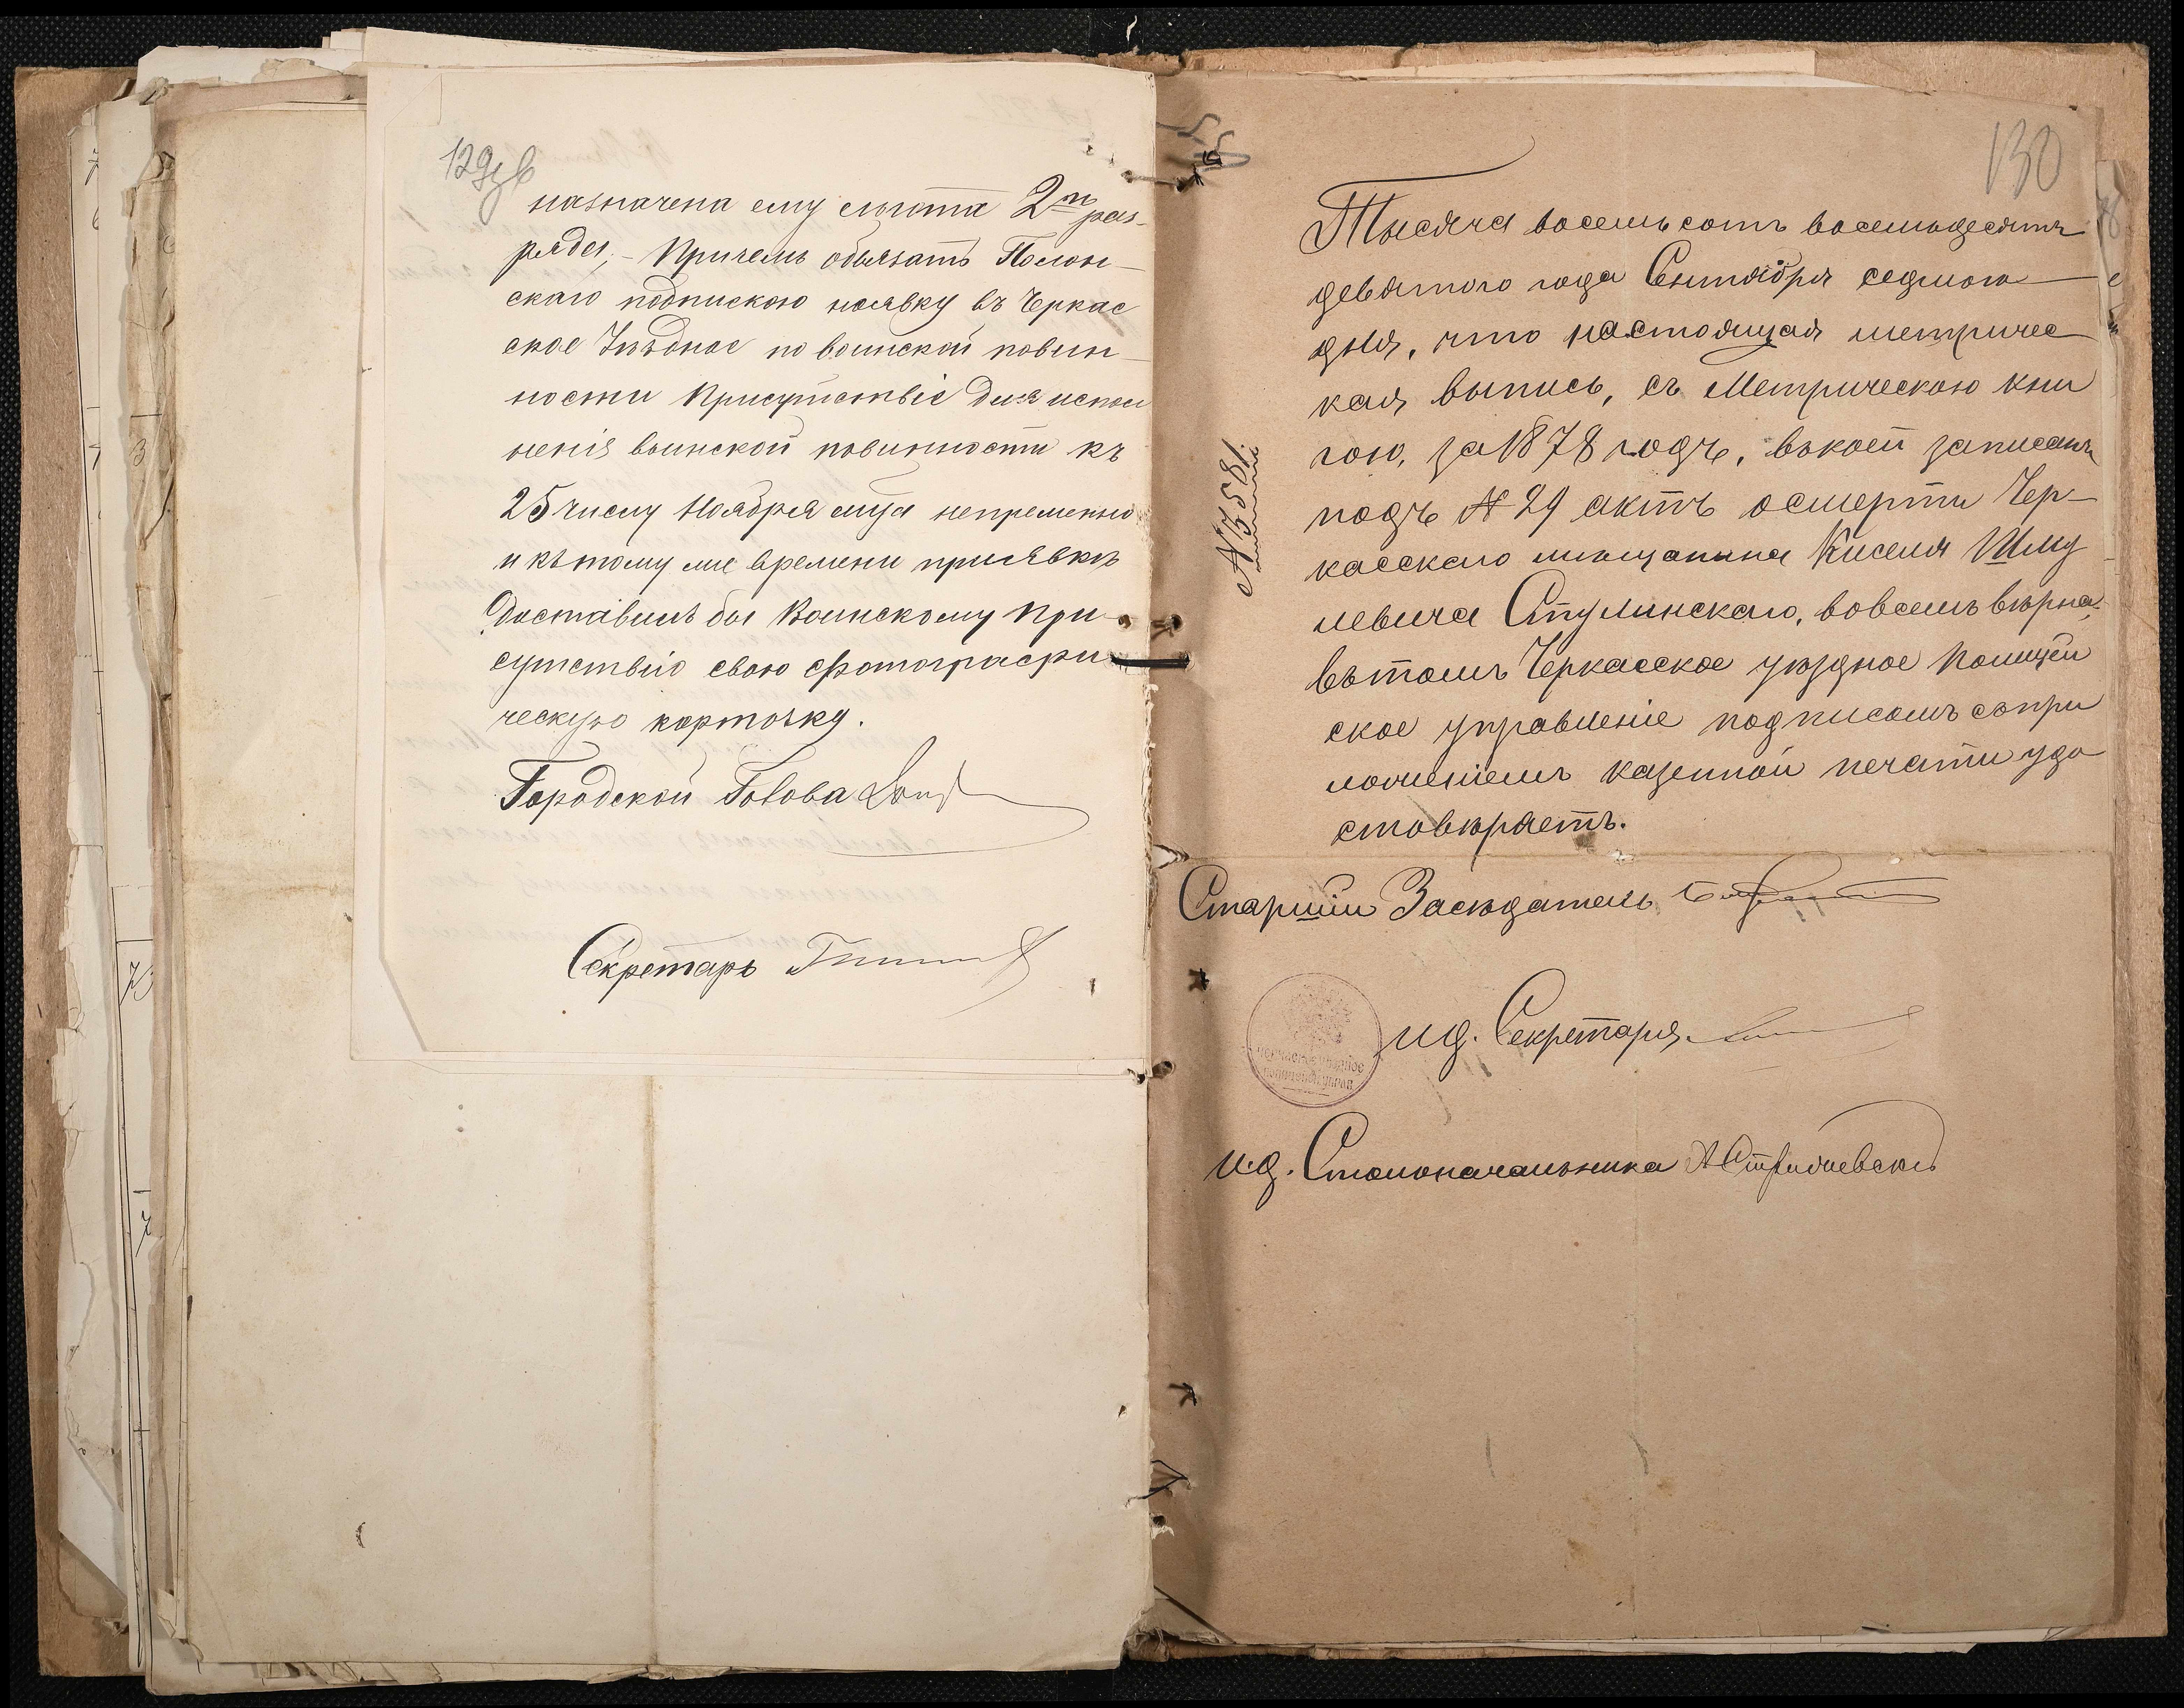 129об
назначена ему льгота 2го раз-
ряда; - Причемъ обязать Полон-
скаго подпискою наявку въ Черкас
ское Уѣздное по воинской повин-
ности Присутствіе для испол
ненія воинской повинности къ
25 числу Ноября м-ца непременно
и кътому же времени приявкѣ
Доставилъ бы Воинскому При-
сутствію свою фотографи-
ческую карточку.
Городской Голова
Секретарь
130
Тысяча восемьсотъ восемьдесятъ
девятого года Сентября седмого
дня, что настоящая метричес
кая выпись, съ Метрическою кни
гою, за 1878 годъ, вкоей записанъ
подъ № 29 актъ осмерти Чер-
касскаго мещанина Киселя Шму
левича Ступинскаго, вовсемъ вѣрна,
вътомъ Черкасское уѣздное Полицей
ское управленіе подписомъ сопри
ложеніемъ казенной печати удо
стовѣряетъ.
№ 3581.
Старшій Засѣдатель
ид. Секретаря
ЧЕРКАССКОЕ УѢЗДНОЕ
ПОЛИЦЕЙСК. УПРАВ.
и.д. Столоначальника